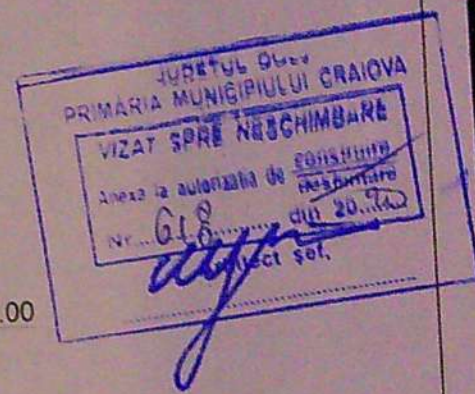 JUDEȚUL DOLJ
PRIMĂRIA MUNICIPIULUI CRAIOVA
VIZAT SPRE NESCHIMBARE
Anexa la autorizația de construire
desființare
Nr. 618 din 20
șef,
.00